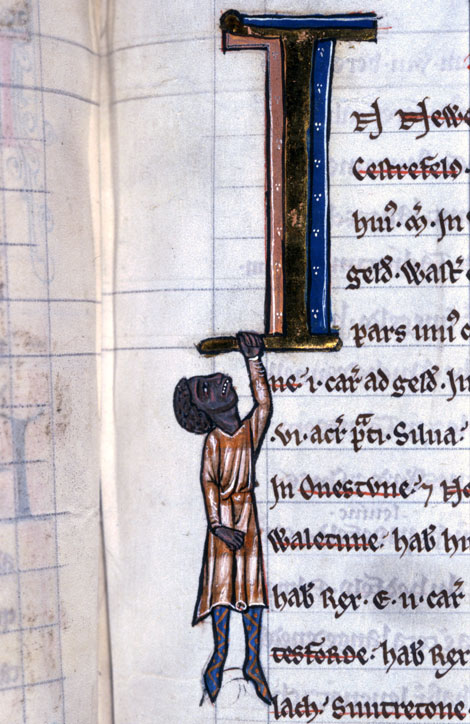 IN Newe
Cestrefeld.
hui᷒. m̃. In
geld. Wast̃
pars uni᷒ c
ne .i. car̃ ad geld. In
.vi. acr̃ p̃ti. Silua.
In Onestune. ⁊
Waletune. hab̃ hu
hab̃ Rex. E. ii. car̃
tesforde. hab̃ Rex
lach. Snutretone.